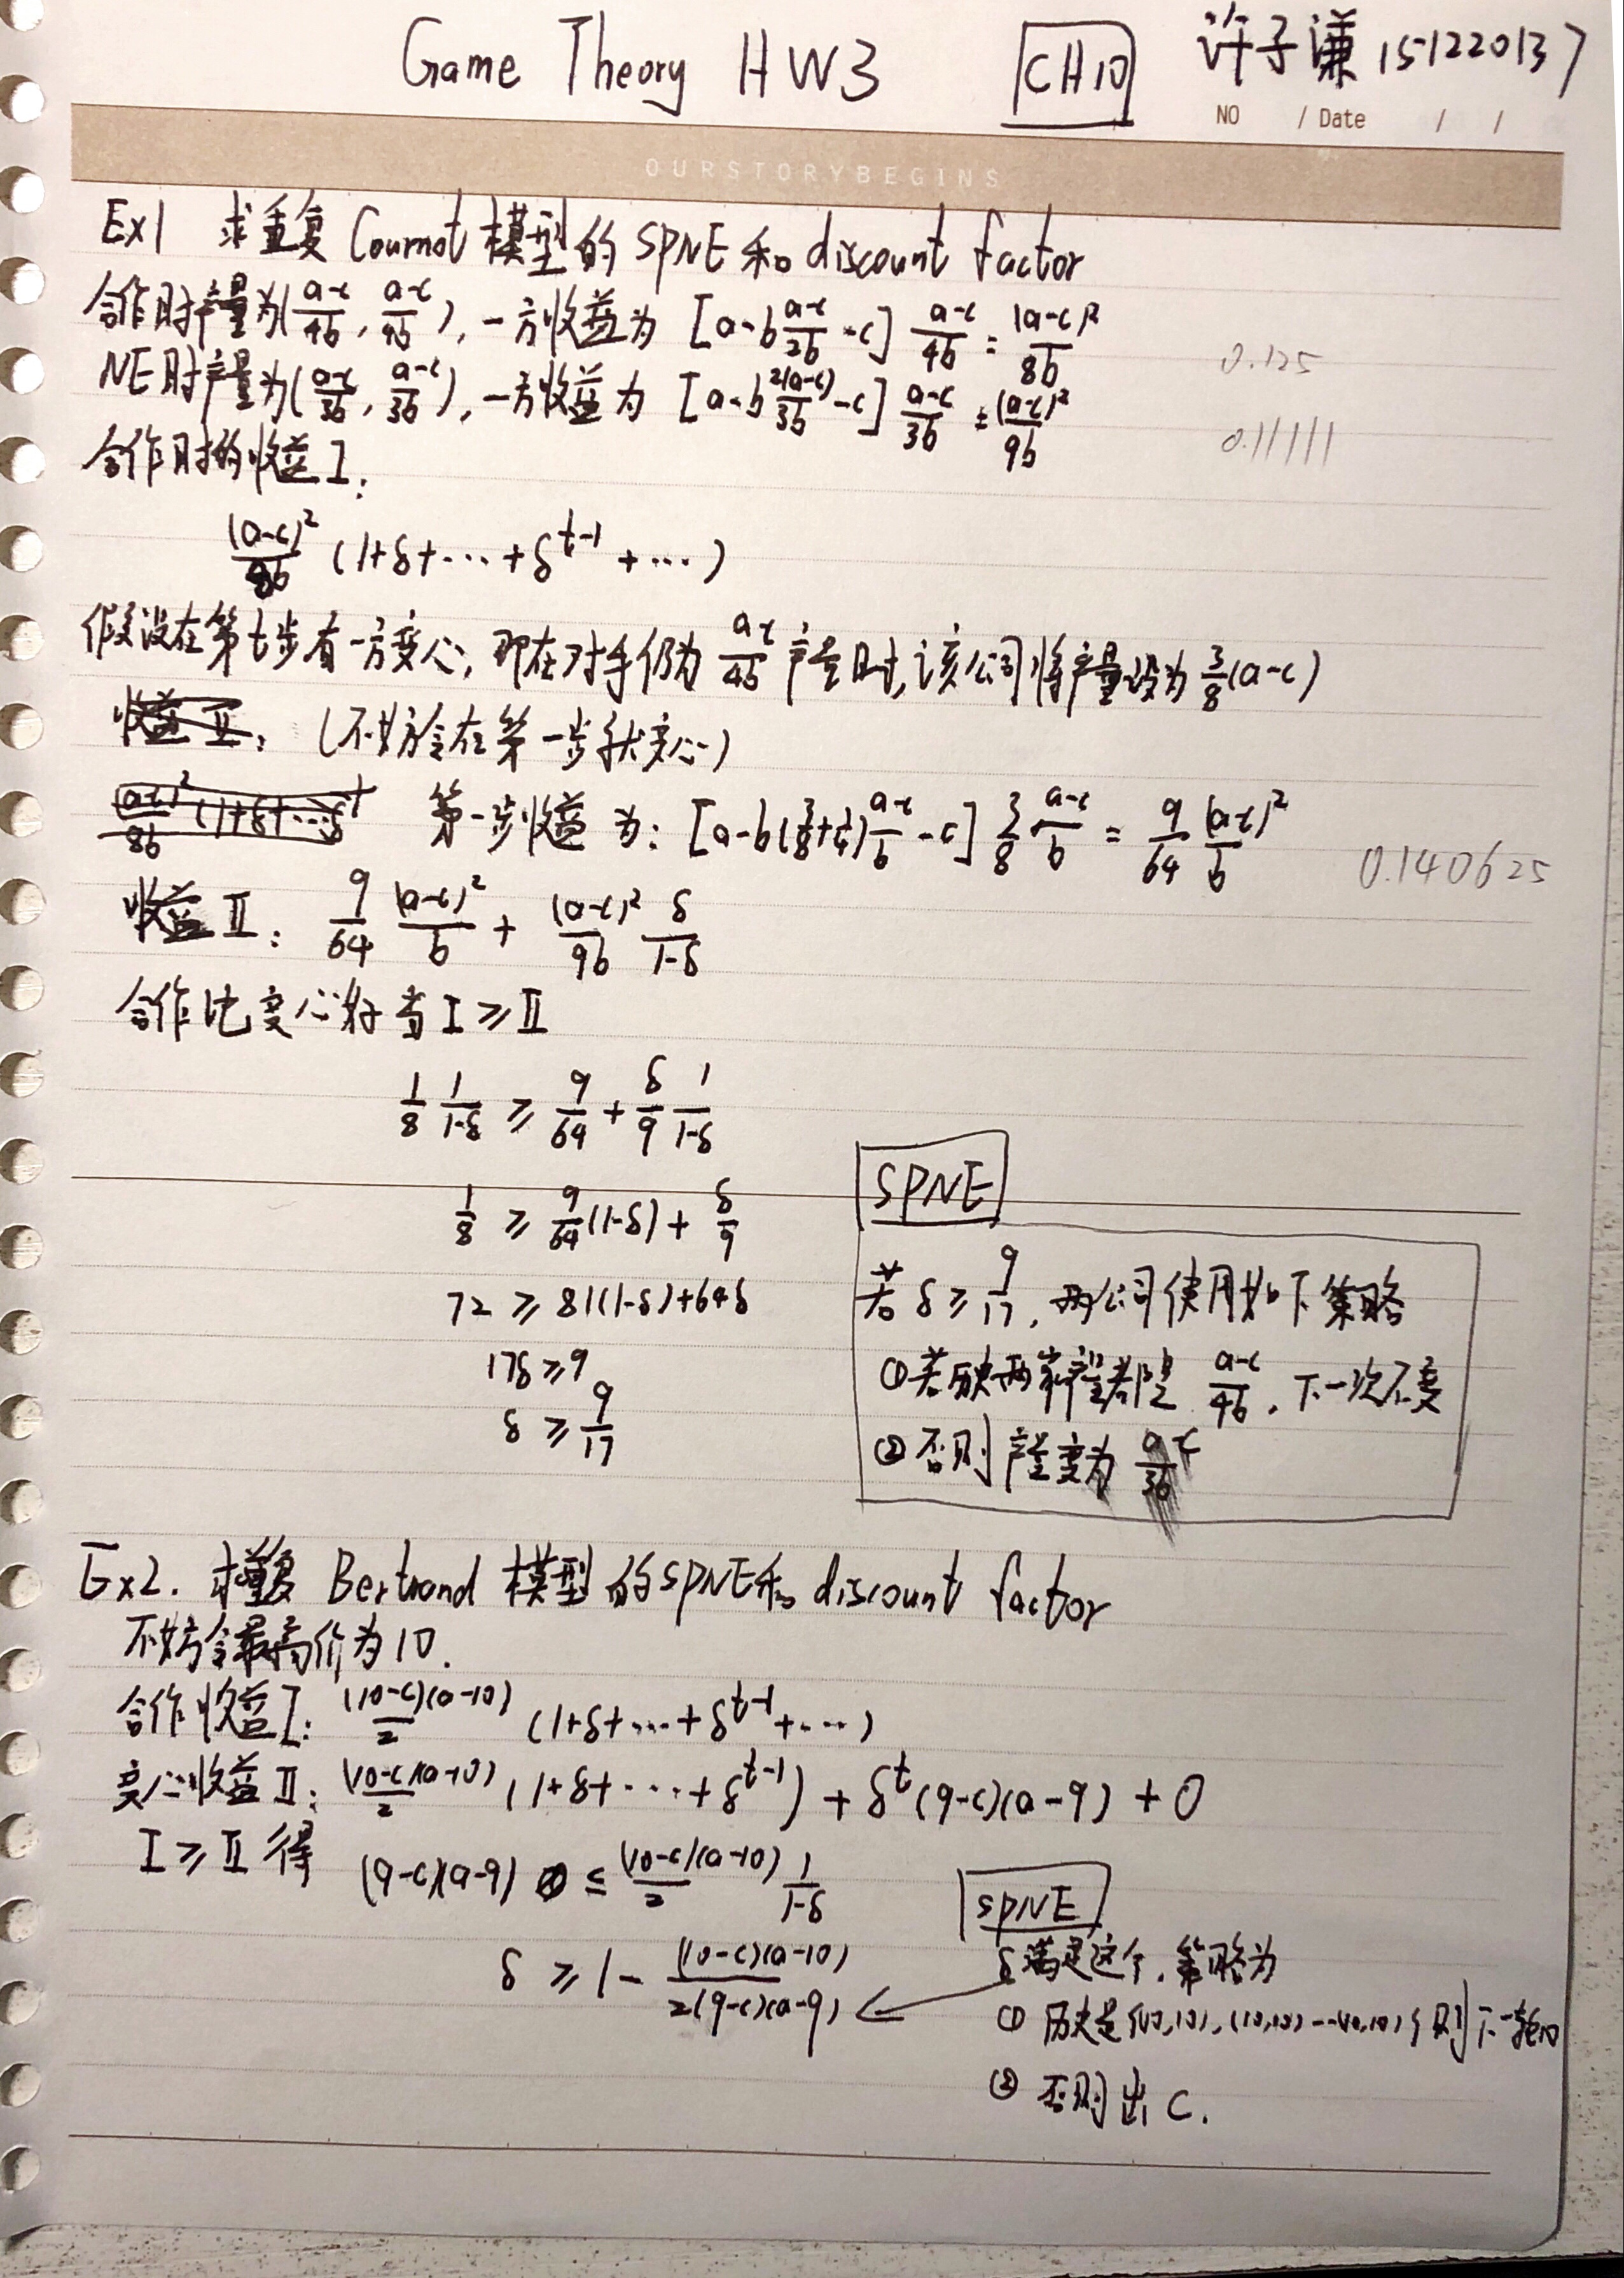 Game Theory HW3 CH10 许子谦 151220137
NO / Date / /
OURSTORYBEGINS
Ex1 求重复 Cournot 模型的 SPNE 和 discount factor
合作时产量为(\frac{a-c}{4b}, \frac{a-c}{4b}), 一方收益为 [a-b\frac{a-c}{2b}-c] \frac{a-c}{4b} = \frac{(a-c)^2}{8b} 0.125
NE时产量为(\frac{a-c}{3b}, \frac{a-c}{3b}), 一方收益为 [a-b\frac{2(a-c)}{3b}-c] \frac{a-c}{3b} = \frac{(a-c)^2}{9b} 0.11111
合作时的收益I:
\frac{(a-c)^2}{8b} (1+δ+⋯+δ^{t-1}+⋯)
假设在第t步有一方变心, 即在对手仍为 \frac{a-c}{4b} 产量时, 该公司将产量设为 \frac{3}{8}(a-c)
收益II: (不妨令在第一步就变心)
\frac{(a-c)^2}{8b} (1+δ+⋯δ^t 第一步收益为: [a-b(\frac{3}{8}+\frac{1}{4})\frac{a-c}{b}-c] \frac{3}{8} \frac{a-c}{b} = \frac{9}{64} \frac{(a-c)^2}{b} 0.140625
收益II: \frac{9}{64} \frac{(a-c)^2}{b} + \frac{(a-c)^2}{9b} \frac{δ}{1-δ}
合作比变心好当 I ≥ II
\frac{1}{8} \frac{1}{1-δ} ≥ \frac{9}{64} + \frac{δ}{9} \frac{1}{1-δ}
\frac{1}{8} ≥ \frac{9}{64}(1-δ) + \frac{δ}{9}
72 ≥ 81(1-δ)+64δ
17δ ≥ 9
δ ≥ \frac{9}{17}
SPNE
若 δ ≥ \frac{9}{17}, 两公司使用如下策略
① 若历史两家产量都是 \frac{a-c}{4b}, 下一次不变
② 否则产量变为 \frac{a-c}{3b}
Ex2. 求重复 Bertrand 模型的SPNE和 discount factor
不妨令最高价为10.
合作收益I: \frac{(10-c)(a-10)}{2} (1+δ+⋯+δ^{t-1}+⋯)
变心收益II: \frac{(10-c)(a-10)}{2} (1+δ+⋯+δ^{t-1}) + δ^t(9-c)(a-9) + 0
I ≥ II 得 (9-c)(a-9) ≤ \frac{(10-c)(a-10)}{2} \frac{1}{1-δ}
δ ≥ 1 - \frac{(10-c)(a-10)}{2(9-c)(a-9)}
SPNE
δ满足这个, 策略为
① 历史是{(10,10), (10,10)⋯(10,10)} 则下一轮10
② 否则出 c.